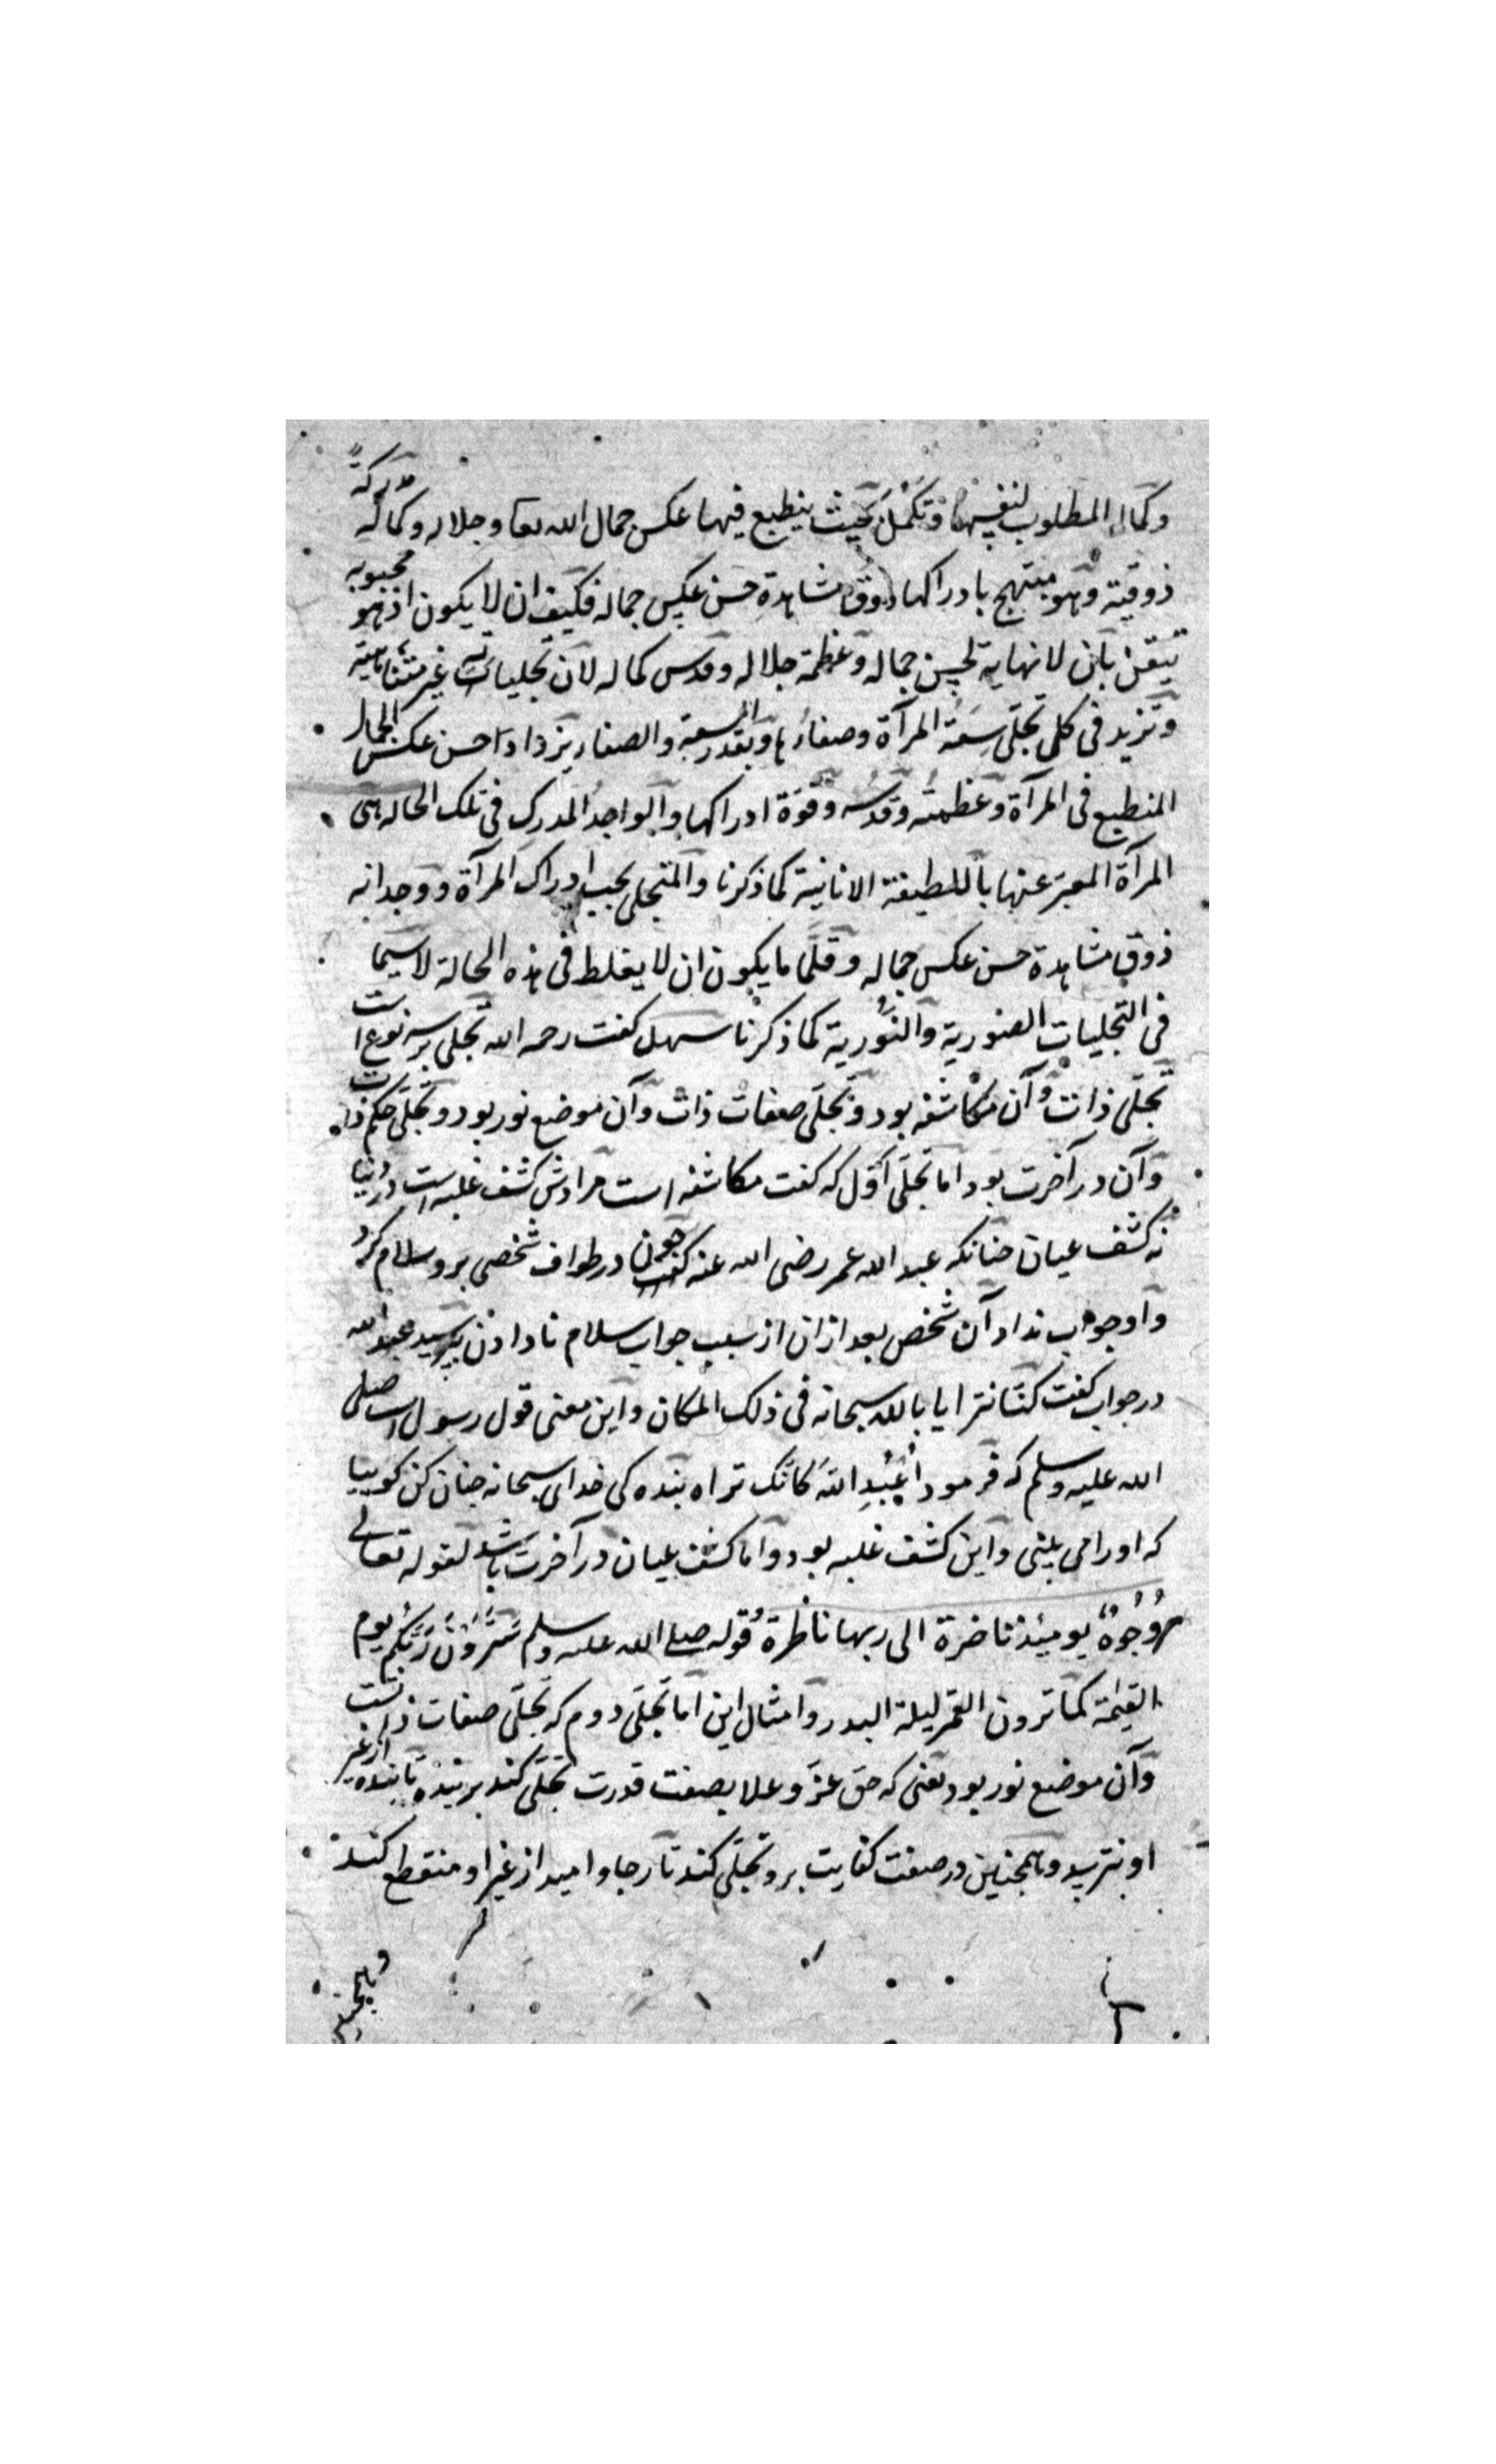 وكمال المطلوب لنفسها وتكمل بحيث ينطبع فيها عكس جمال الله تعا وجلاله وكماله مدركة
ذوقية وهو مبتهج بادراكها ذوق مشاهدة حسن عكس جماله فكيف ان لا يكون اذ هو محبوبه
تيقن بان لا نهاية لحسن جماله وعظمة جلاله وقدس كماله لان تجلياته غير متناهية
وتزيد فى كل تجلى سعة المرآة وصفاؤها وبقدر السعة والصفاء يزداد حسن عكس الجمال
المنطبع فى المرآة وعظمته وقدسه وقوة ادراكها والواجد المدرك فى تلك الحاله هى
المرآة المعبر عنها باللطيفة الانانية كما ذكرنا والمتجلى يحب ادراك المرآة ووجدانه
ذوق مشاهدة حسن عكس جماله وقلما ما يكون ان لا يغلط فى هذه الحالة لا سيما
فى التجليات الصورية والنورية كما ذكرنا سهل كفت رحمه الله تجلى برسه نوع است
تجلى ذات وآن مكاشفه بود وتجلى صفات ذات وآن موضع نور بود وتجلى حكم ذات
وآن در آخرت بود اما تجلى اول كه كفت مكاشفه است مرادش كشف غلبه است در دنيا
نه كشف عيان جنانكه عبد الله عمر رضى الله عنه جون در طواف شخصى برو سلام كرد
واو جواب نداد آن شخص بعد ازان از سبب جواب سلام نا دادن بپرسيد عبد الله
در جواب كفت كنا نترايا بالله سبحانه فى ذلك المكان واين معنى قول رسول است صلى
الله عليه وسلم كه فرمود أعبد الله كانك تراه بنده كى خداى سبحانه جنان كن كوييا
كه اورا مى بينى واين كشف غلبه بود واما كشف عيان در آخرت باشد لقوله تعالى
وُجُوهٌ يومئذ ناضرة الى ربها ناظرة وقوله صلى الله عليه وسلم سترون ربكم يوم
القيمة كما ترون القمر ليلة البدر وامثال اين اما تجلى دوم كه تجلى صفات ذاتست
وآن موضع نور بود يعنى كه حق عز وعلا بصفت قدرت تجلى كند بر بنده تا بنده از غير
او نترسد وهمجنين در صفت كفايت برو تجلى كند تا رجا واميد از غير او منقطع كند
وهمجنين